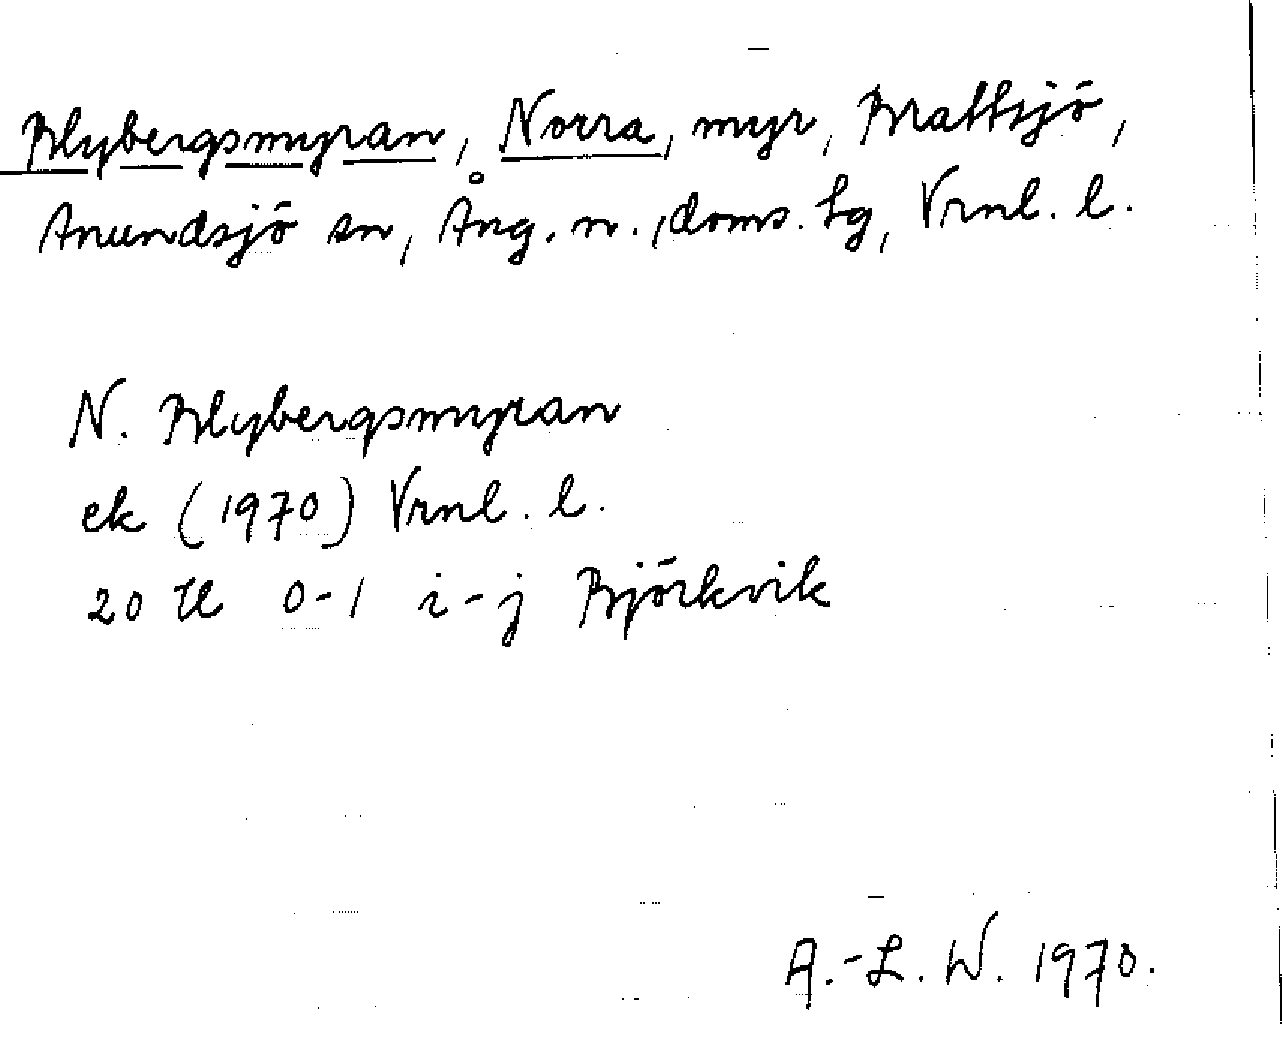 Blybergsmyran, Norra, myr, Brattsjö,
Anundsjö sn, Ång. n., doms. hg, Vrnl. l.
N. Blybergsmyran
ek (1970) Vrnl. l.
20 H 0-1 i-j Björkvik
A.-L. W. 1970.